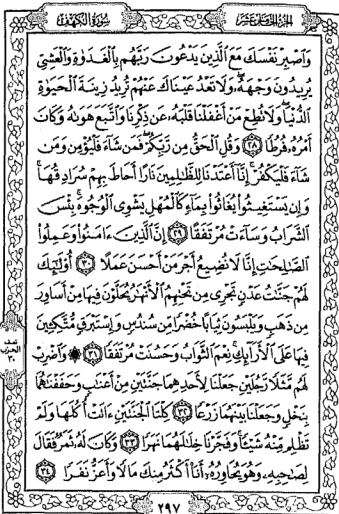 الجزء الخامس عشر
سورة الكهف
وَاصْبِرْ نَفْسَكَ مَعَ الَّذِينَ يَدْعُونَ رَبَّهُم بِالْغَدَوٰةِ وَالْعَشِيِّ
يُرِيدُونَ وَجْهَهُۥ وَلَا تَعْدُ عَيْنَاكَ عَنْهُمْ تُرِيدُ زِينَةَ الْحَيَوٰةِ
الدُّنْيَا وَلَا تُطِعْ مَنْ أَغْفَلْنَا قَلْبَهُۥ عَن ذِكْرِنَا وَاتَّبَعَ هَوَىٰهُ وَكَانَ
أَمْرُهُۥ فُرُطًا ٢٨ وَقُلِ الْحَقُّ مِن رَّبِّكُمْ فَمَن شَآءَ فَلْيُؤْمِن وَمَن
شَآءَ فَلْيَكْفُرْ إِنَّآ أَعْتَدْنَا لِلظَّٰلِمِينَ نَارًا أَحَاطَ بِهِمْ سُرَادِقُهَا
وَإِن يَسْتَغِيثُوا يُغَاثُوا بِمَآءٍ كَالْمُهْلِ يَشْوِي الْوُجُوهَ بِئْسَ
الشَّرَابُ وَسَآءَتْ مُرْتَفَقًا ٢٩ إِنَّ الَّذِينَ ءَامَنُوا وَعَمِلُوا
الصَّٰلِحَٰتِ إِنَّا لَا نُضِيعُ أَجْرَ مَنْ أَحْسَنَ عَمَلًا ٣٠ أُولَٰٓئِكَ
لَهُمْ جَنَّٰتُ عَدْنٍ تَجْرِي مِن تَحْتِهِمُ الْأَنْهَٰرُ يُحَلَّوْنَ فِيهَا مِنْ أَسَاوِرَ
مِن ذَهَبٍ وَيَلْبَسُونَ ثِيَابًا خُضْرًا مِّن سُندُسٍ وَإِسْتَبْرَقٍ مُّتَّكِـِٔينَ
فِيهَا عَلَى الْأَرَآئِكِ نِعْمَ الثَّوَابُ وَحَسُنَتْ مُرْتَفَقًا ٣١ ۞ وَاضْرِبْ
لَهُم مَّثَلًا رَّجُلَيْنِ جَعَلْنَا لِأَحَدِهِمَا جَنَّتَيْنِ مِنْ أَعْنَٰبٍ وَحَفَفْنَٰهُمَا
بِنَخْلٍ وَجَعَلْنَا بَيْنَهُمَا زَرْعًا ٣٢ كِلْتَا الْجَنَّتَيْنِ ءَاتَتْ أُكُلَهَا وَلَمْ
تَظْلِم مِّنْهُ شَيْـًٔا وَفَجَّرْنَا خِلَٰلَهُمَا نَهَرًا ٣٣ وَكَانَ لَهُۥ ثَمَرٌ فَقَالَ
لِصَٰحِبِهِۦ وَهُوَ يُحَاوِرُهُۥٓ أَنَا۠ أَكْثَرُ مِنكَ مَالًا وَأَعَزُّ نَفَرًا ٣٤
نصف
الحزب
٣٠
٢٩٧